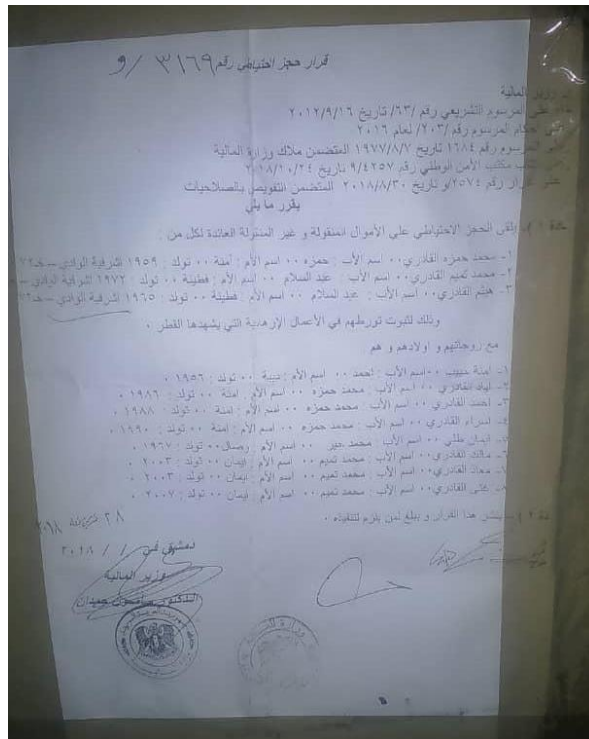 قرار حجز احتياطي رقم ٣١٦٩ /و
وزير المالية
المرسوم التشريعي رقم /٦٣/ تاريخ ٢٠١٢/٩/١٦
أحكام المرسوم رقم /٢٠٣/ لعام ٢٠١٦
المرسوم رقم ١٦٨٤ تاريخ ١٩٧٧/٨/٧ المتضمن ملاك وزارة المالية
كتاب مكتب الأمن الوطني رقم ٩/٤٢٥٧ تاريخ ٢٠١٨/١٠/٢٤
القرار رقم ٢٥٧٤/و تاريخ ٢٠١٨/٨/٣٠ المتضمن التفويض بالصلاحيات
يقرر ما يلي
مادة ١ - يلقى الحجز الاحتياطي على الأموال المنقولة و غير المنقولة العائدة لكل من :
١- محمد حمزه القادري٠٠ اسم الأب : حمزه ٠٠ اسم الأم : آمنة ٠٠ تولد : ١٩٥٩ اشرفية الوادي –
٢- محمد تميم القادري٠٠ اسم الأب : عبد السلام ٠٠ اسم الأم : فطينة ٠٠ تولد : ١٩٧٢ اشرفية الوادي –
٣- هيثم القادري٠٠ اسم الأب : عبد السلام ٠٠ اسم الأم : فطينة ٠٠ تولد : ١٩٦٥ اشرفية الوادي –
وذلك لثبوت تورطهم في الأعمال الإرهابية التي يشهدها القطر ٠
مع زوجاتهم و اولادهم و هم
١- امنة حبيب ٠٠اسم الأب : احمد ٠٠ اسم الأم : ٠٠ تولد : ١٩٥٦ ٠
٢- القادري٠٠ اسم الأب : محمد حمزه ٠٠ اسم الأم : امنة ٠٠ تولد : ١٩٨٦ ٠
٣- احمد القادري٠٠ اسم الأب : محمد حمزه ٠٠ اسم الأم : امنة ٠٠ تولد : ١٩٨٨ ٠
٤- اسراء القادري٠٠ اسم الأب : محمد حمزه ٠٠ اسم الأم : امنة ٠٠ تولد : ١٩٩٠ ٠
٥- ايمان طلي ٠٠ اسم الأب : محمد ٠٠ اسم الأم : ٠٠ تولد : ١٩٦٧ ٠
٦- مالك القادري٠٠ اسم الأب : محمد تميم ٠٠ اسم الأم : ايمان ٠٠ تولد : ٢٠٠٣ ٠
٧- معاذ القادري٠٠ اسم الأب : محمد تميم ٠٠ اسم الأم : ايمان ٠٠ تولد : ٢٠٠٣ ٠
٨- القادري٠٠ اسم الأب : محمد تميم ٠٠ اسم الأم : ايمان ٠٠ تولد : ٢٠٠٧ ٠
مادة ٢ - ينشر هذا القرار و يبلغ لمن يلزم لتنفيذه ٠
٢٨ ٢٠١٨
دمشق في / / ٢٠١٨
وزير المالية
الدكتور مأمون حمدان